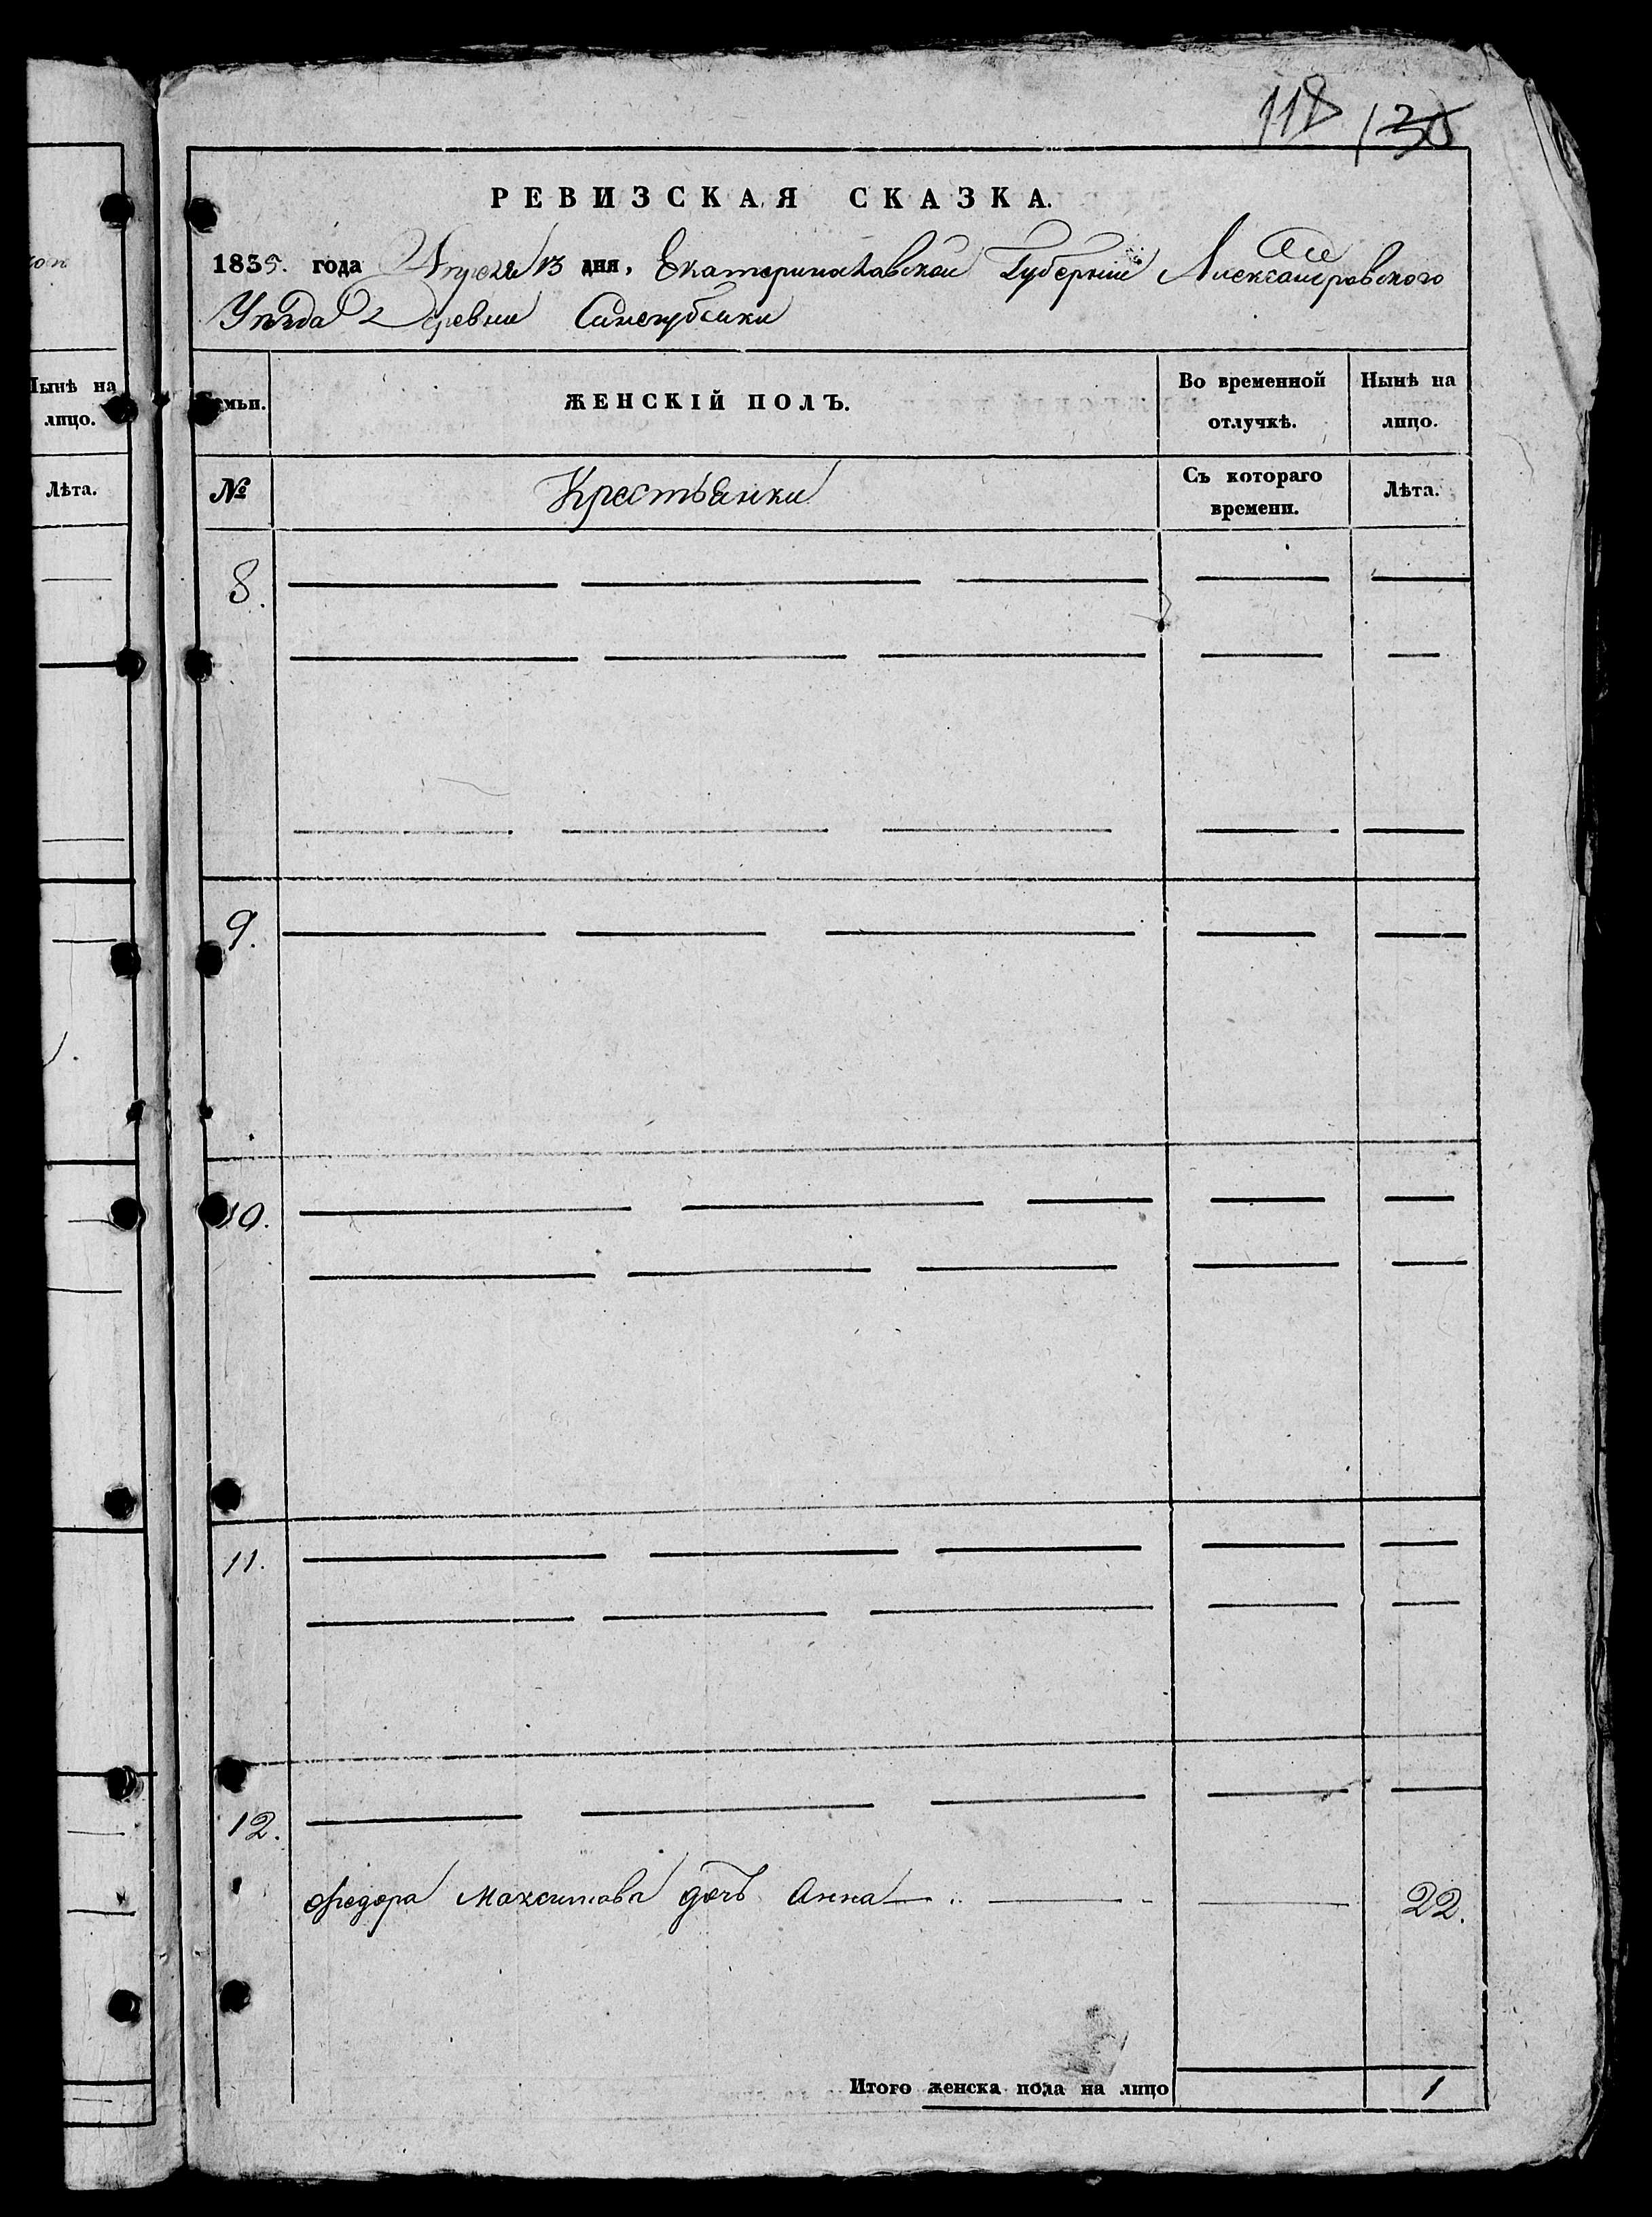 118 130
РЕВИЗСКАЯ СКАЗКА.
1835. года Апреля 13 дня, Екатеринославской Губернии Александровского
Уѣзда Деревни
Семьи. ЖЕНСКІЙ ПОЛЪ. Во временной отлучкѣ. Нынѣ на лицо.
№ Крестьянки Съ котораго времени. Лѣта.
8.
9.
10.
11.
12.
Федора Максимова дочь Анна 22.
Итого женска пола на лицо 1
Нынѣ на
лицо.
Лѣта.